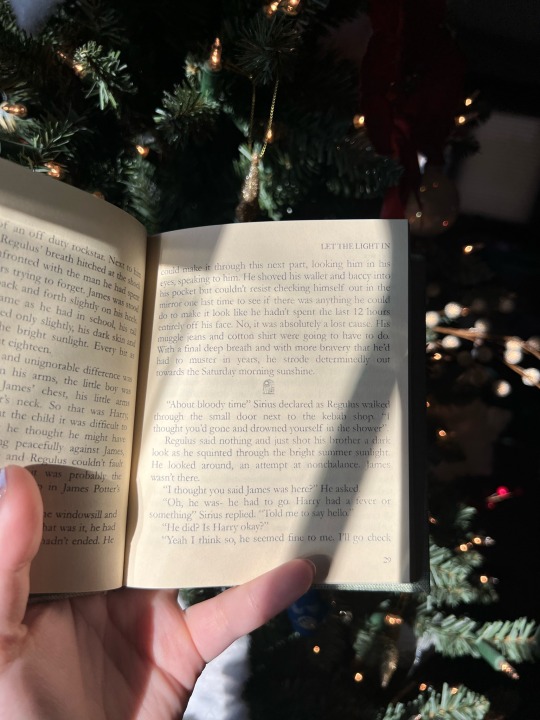 of an off duty rockstar. Next to
Regulus' breath hitched at the
nfronted with the man he had spent
rs trying to forget. James was
ack and forth slightly on his
ame as he had in school, his
ed only slightly, his dark skin and
he bright sunlight. Every bit as
t eighteen.
and unignorable difference was
n his arms, the little boy was
James' chest, his little arms
r's neck. So that was Harry
at the child it was difficult to
he thought he might have
ng peacefully against James,
and Regulus couldn't fault
t was probably the
in James Potter's
he windowsill and
hat was it, he had
hadn't ended. He
LET THE LIGHT IN
could make it through this next part, looking him in his
eyes, speaking to him. He shoved his wallet and baccy into
his pocket but couldn't resist checking himself out in the
mirror one last time to see if there was anything he could
do to make it look like he hadn't spent the last 12 hours
entirely off his face. No, it was absolutely a lost cause. His
muggle jeans and cotton shirt were going to have to do.
With a final deep breath and with more bravery that he'd
had to muster in years, he strode determinedly out
towards the Saturday morning sunshine.
"About bloody time" Sirius declared as Regulus walked
through the small door next to the kebab shop. "I
thought you'd gone and drowned yourself in the shower".
Regulus said nothing and just shot his brother a dark
look as he squinted through the bright summer sunlight.
He looked around, an attempt at nonchalance. James
wasn't there.
"I thought you said James was here?" He asked.
"Oh, he was- he had to go. Harry had a fever or
something" Sirius replied. "Told me to say hello."
"He did? Is Harry okay?"
"Yeah I think so, he seemed fine to me. I'll go check
29